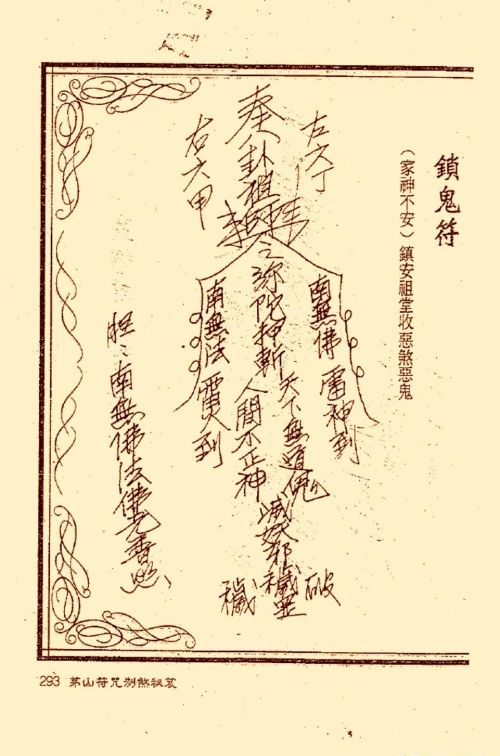 鎖鬼符
（家神不安）鎮安祖堂收惡煞惡鬼
左六丁
奉八卦祖
右六甲
南無佛 雷神到
天下無道
滅妖邪穢
破
之弥陀押斬
人間不正神
穢
南無法
到
南無佛法佛光普照
293 茅山符咒制煞秘笈